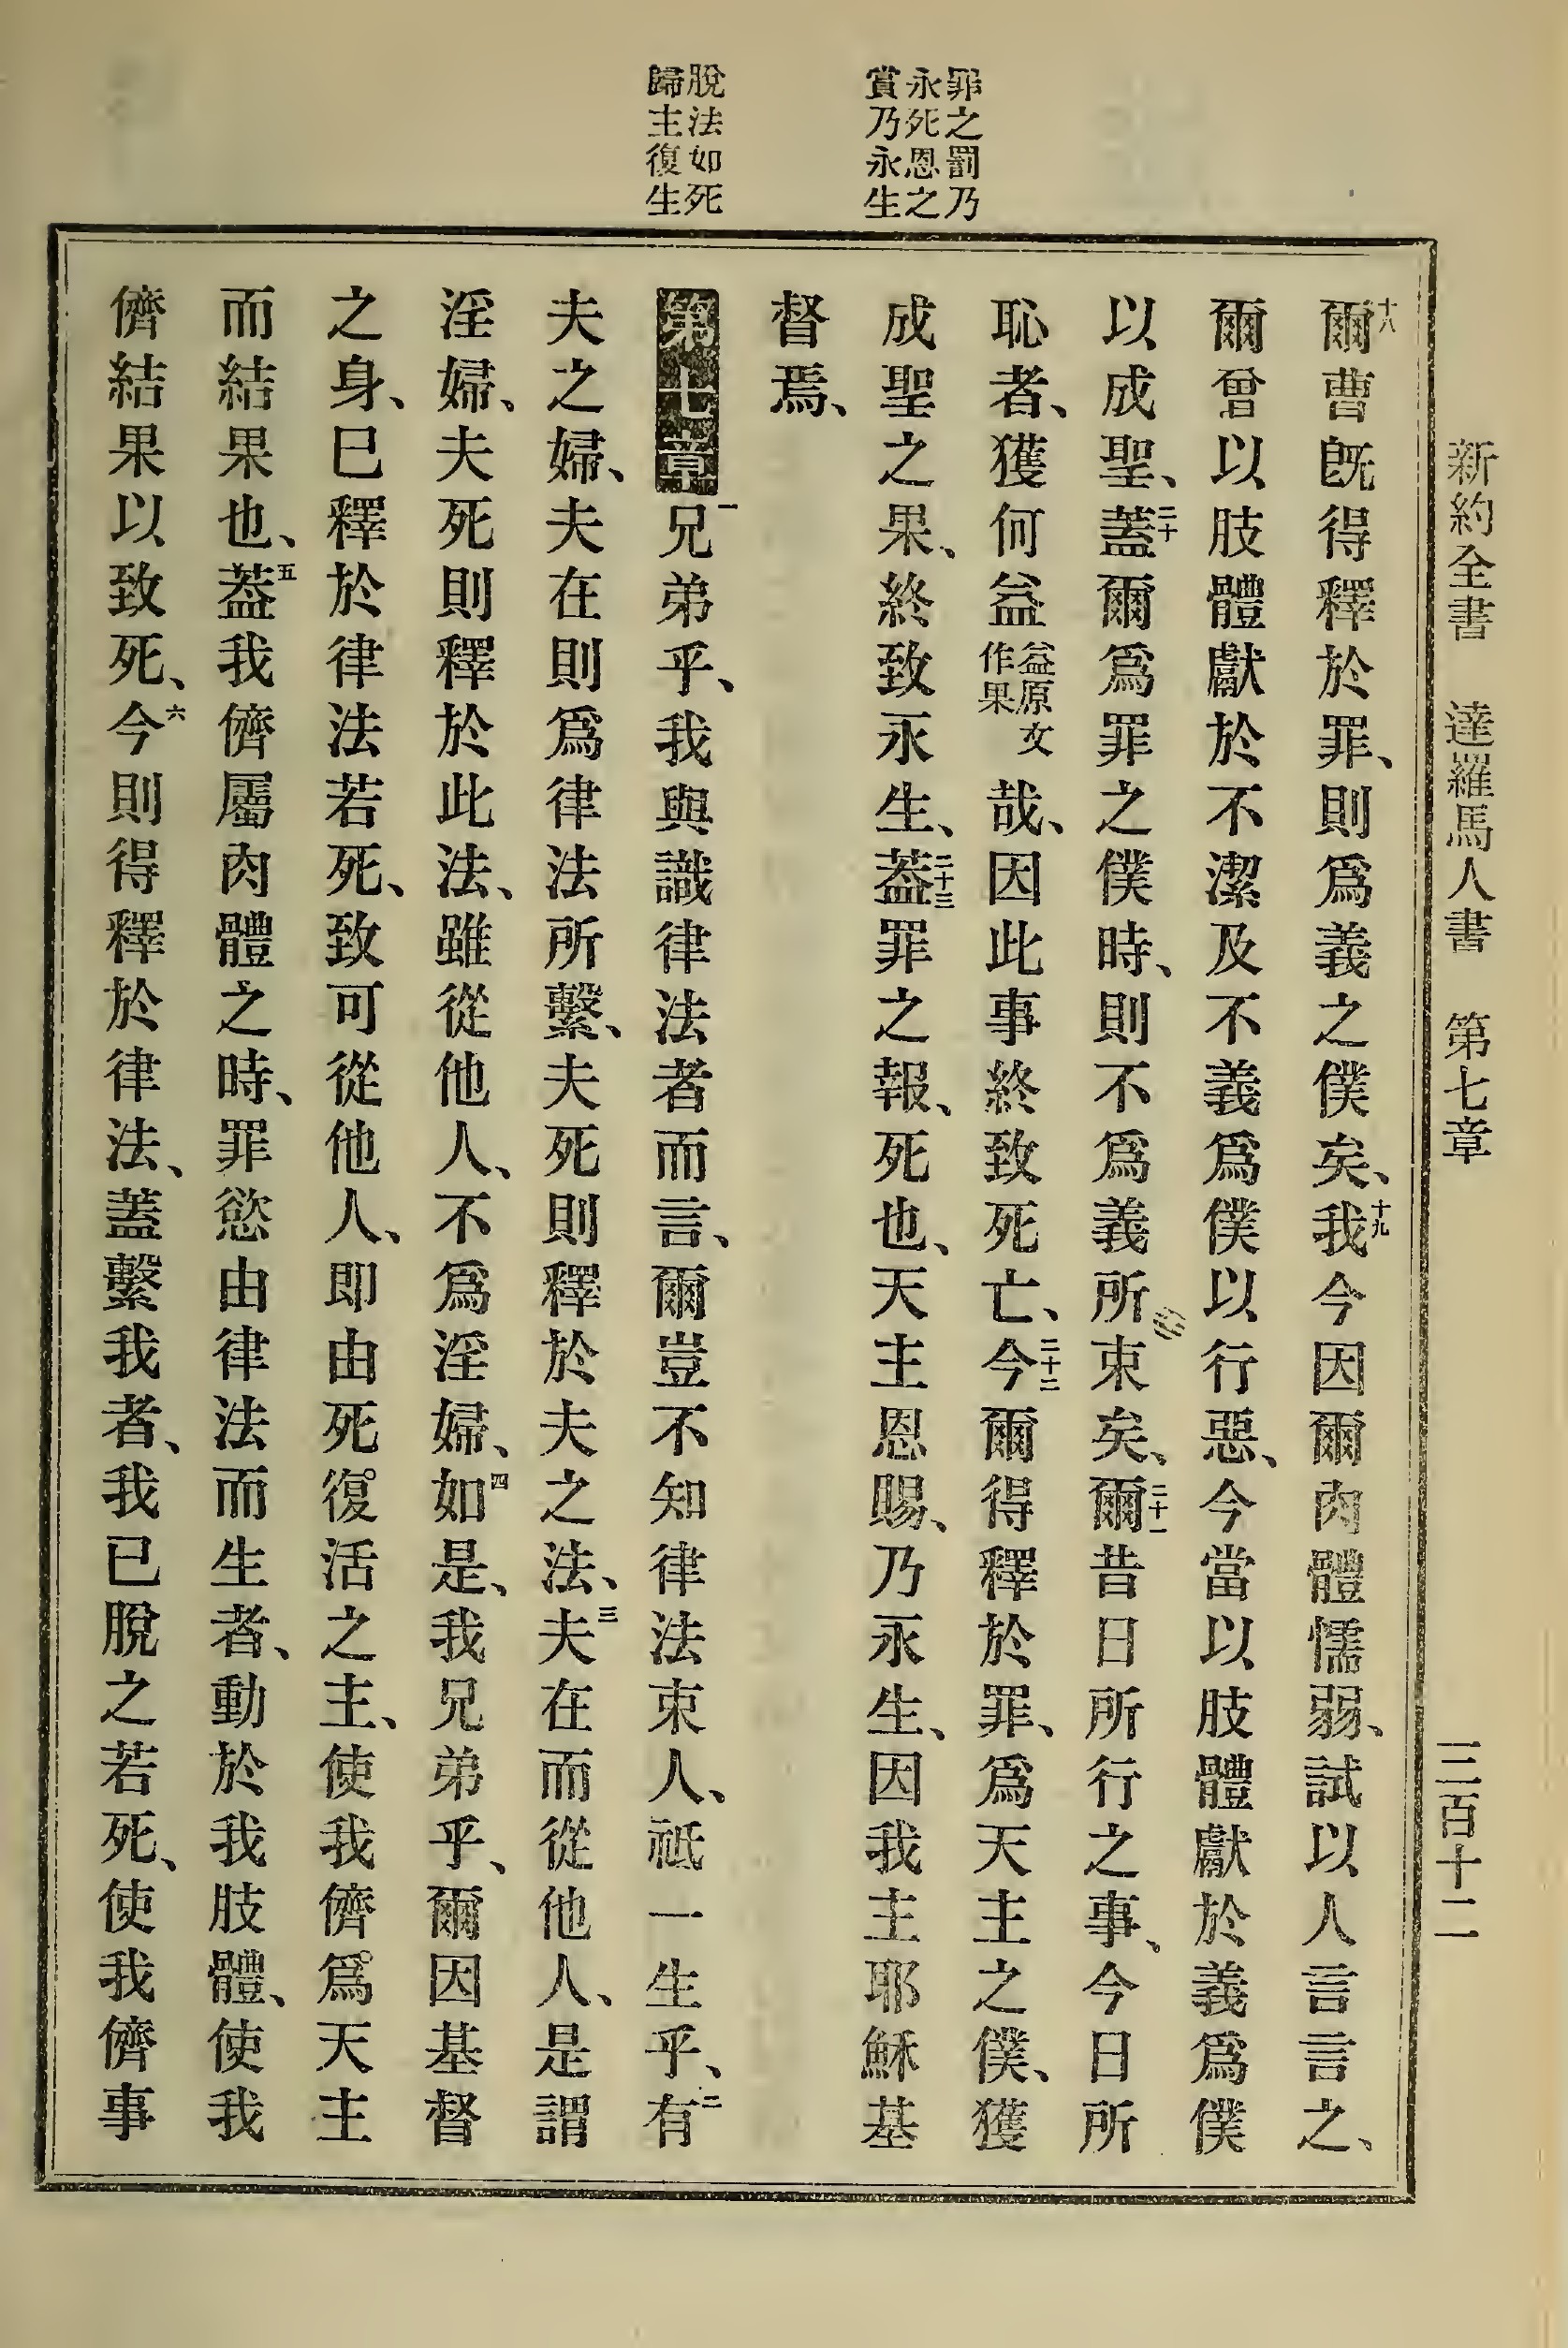 新約全書 達羅馬人書 第七章 三百十二
罪之罰乃
永死恩之
賞乃永生
脫法如死
歸主復生
十八爾曹旣得釋於罪、則爲義之僕矣、十九我今因爾肉體懦弱、試以人言言之、
爾曾以肢體獻於不潔及不義爲僕以行惡、今當以肢體獻於義爲僕
以成聖、二十蓋爾爲罪之僕時、則不爲義所束矣、二十一爾昔日所行之事、今日所
恥者、獲何益益原文作果哉、因此事終致死亡、二十二今爾得釋於罪、爲天主之僕、獲
成聖之果、終致永生、二十三蓋罪之報、死也、天主恩賜、乃永生、因我主耶穌基
督焉、
第七章一兄弟乎、我與識律法者而言、爾豈不知律法束人、祇一生乎、二有
夫之婦、夫在則爲律法所繫、夫死則釋於夫之法、三夫在而從他人、是謂
淫婦、夫死則釋於此法、雖從他人、不爲淫婦、四如是、我兄弟乎、爾因基督
之身、已釋於律法若死、致可從他人、即由死復活之主、使我儕爲天主
而結果也、五蓋我儕屬肉體之時、罪慾由律法而生者、動於我肢體、使我
儕結果以致死、六今則得釋於律法、蓋繫我者、我已脫之若死、使我儕事